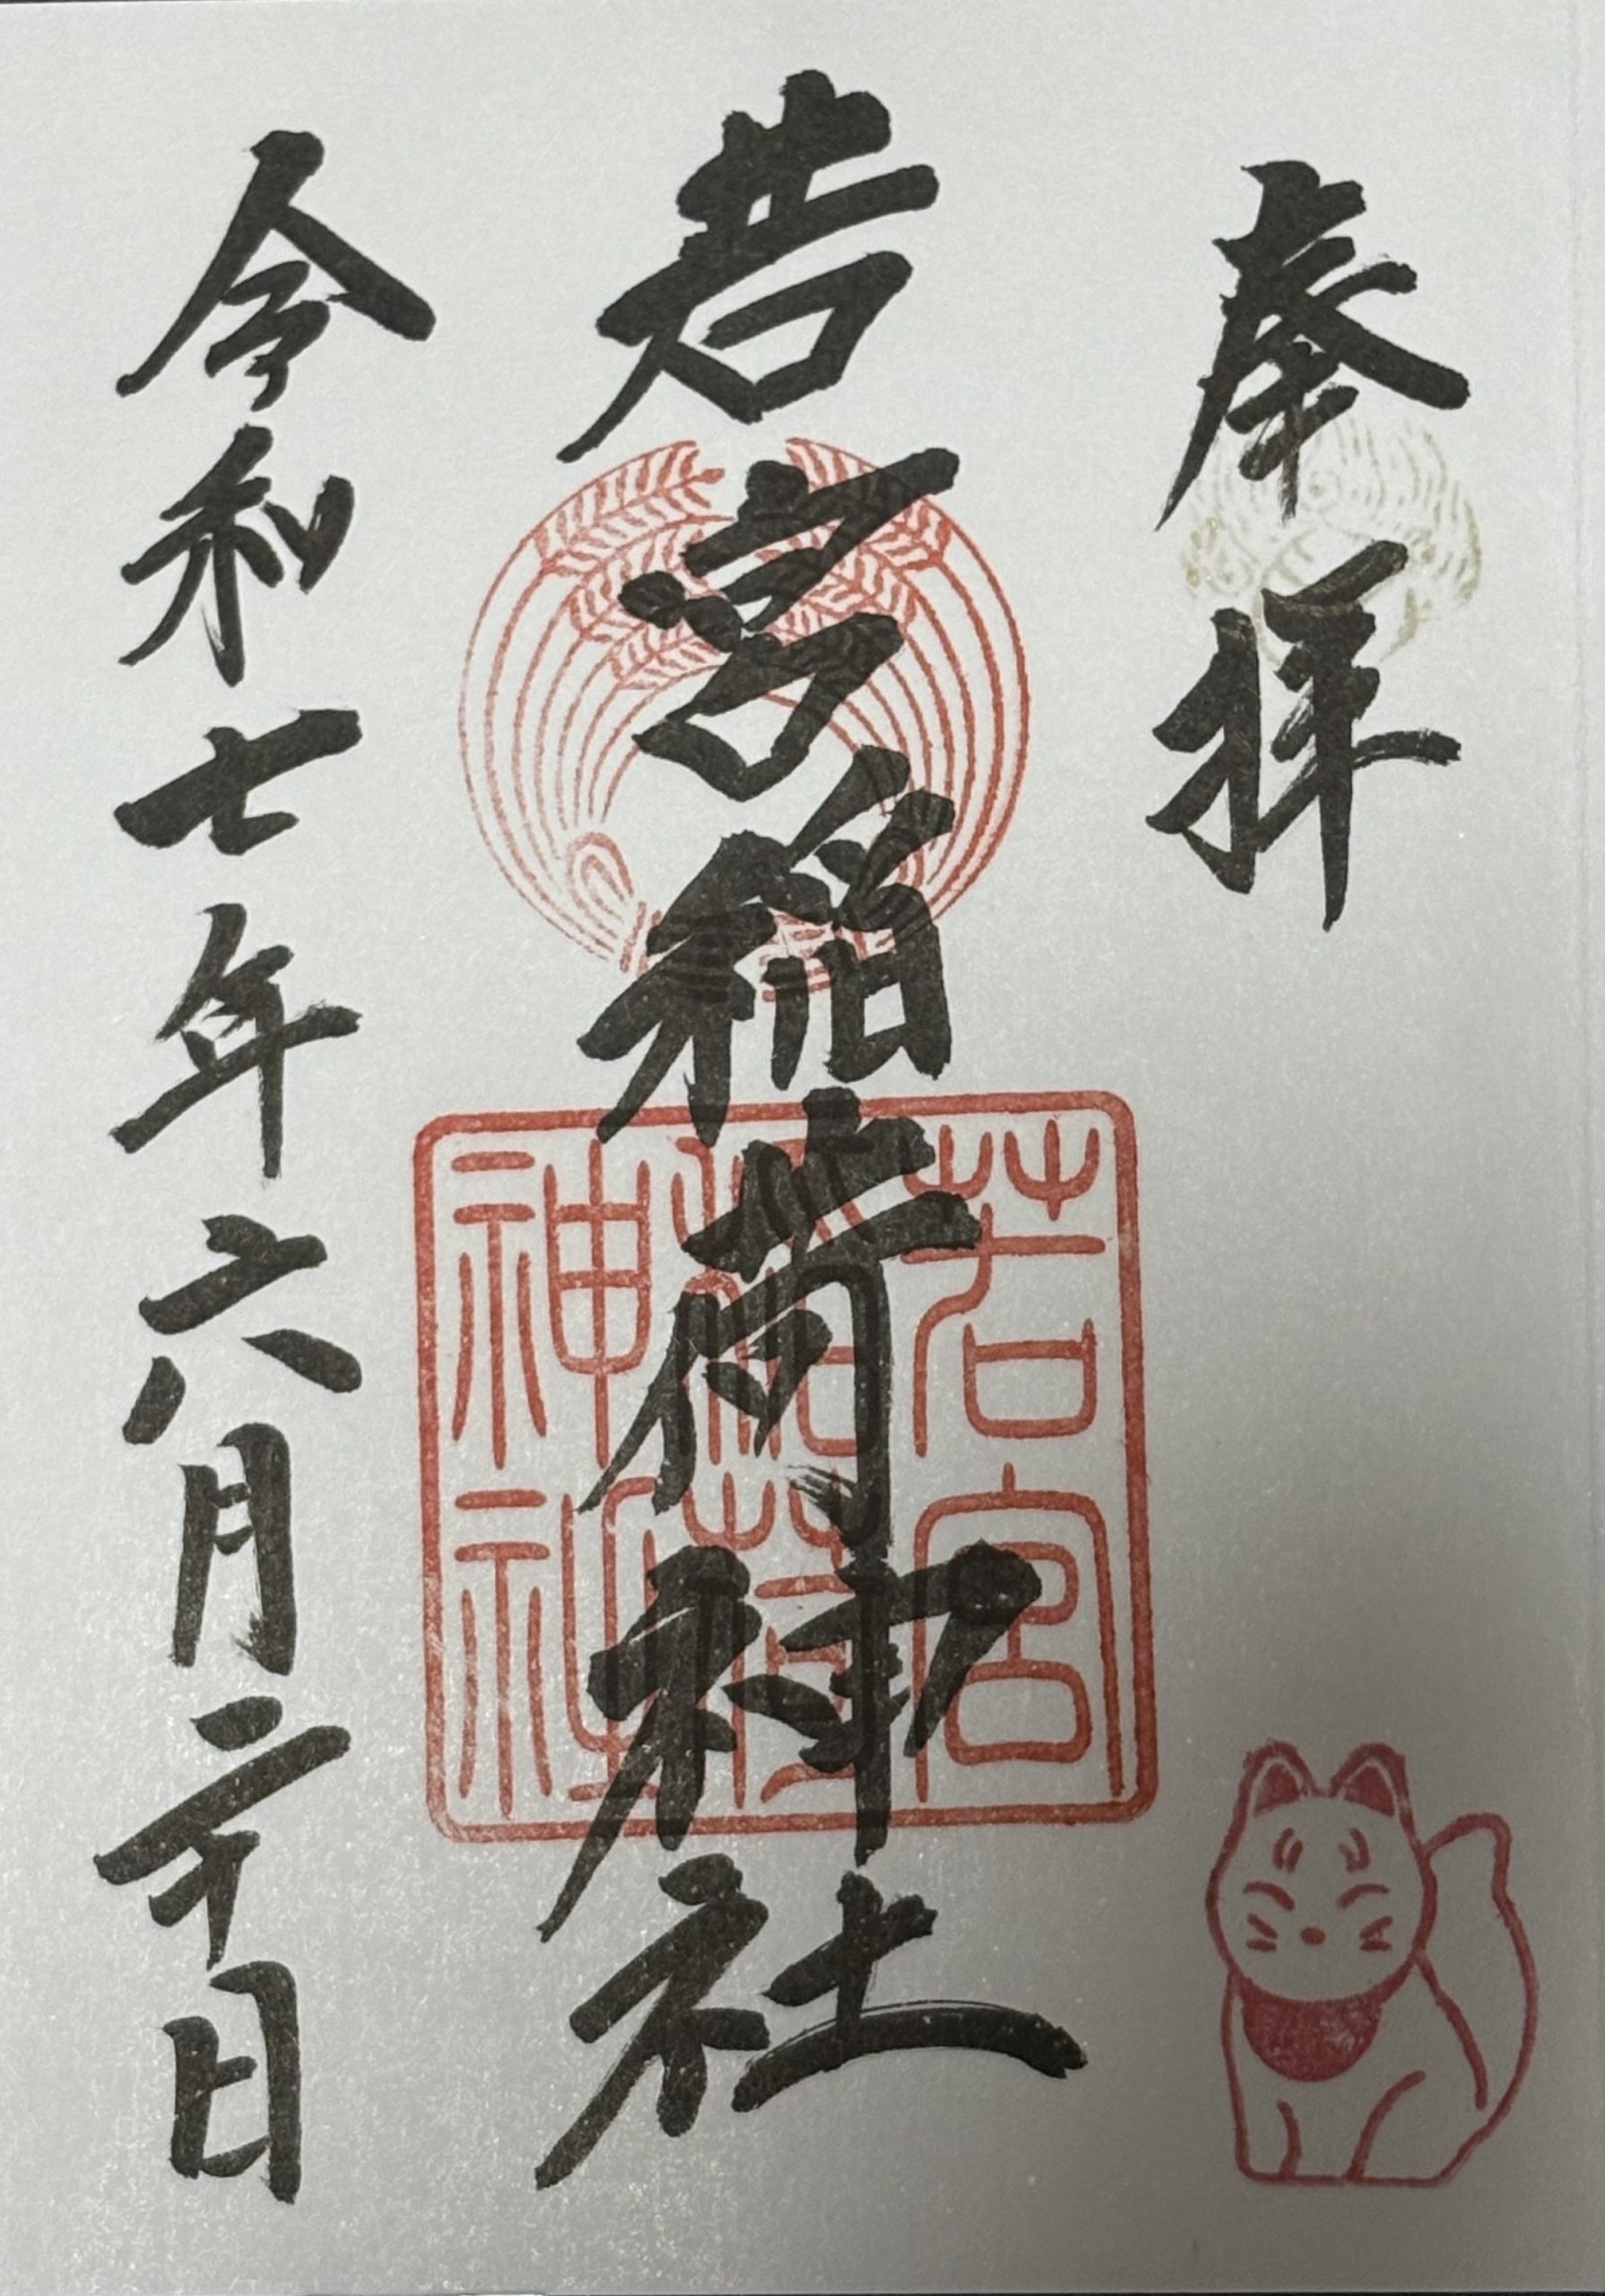 奉拝
若宮稲荷神社
若宮
稲荷
神社
令和七年六月二十日